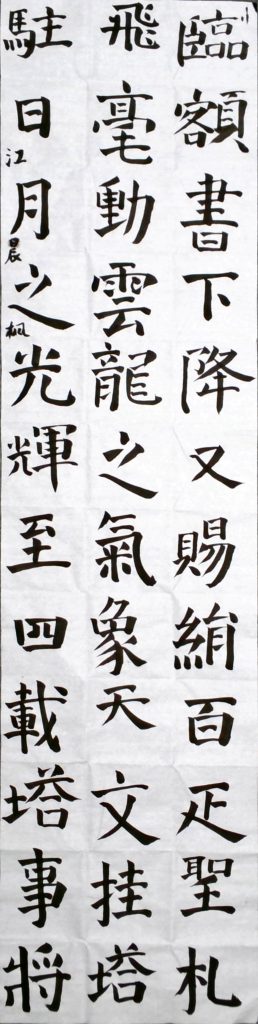 臨額書下降又賜絹百疋聖札
飛毫動雲龍之氣象天文挂塔
駐日月之光輝至四載塔事將
江晨枫